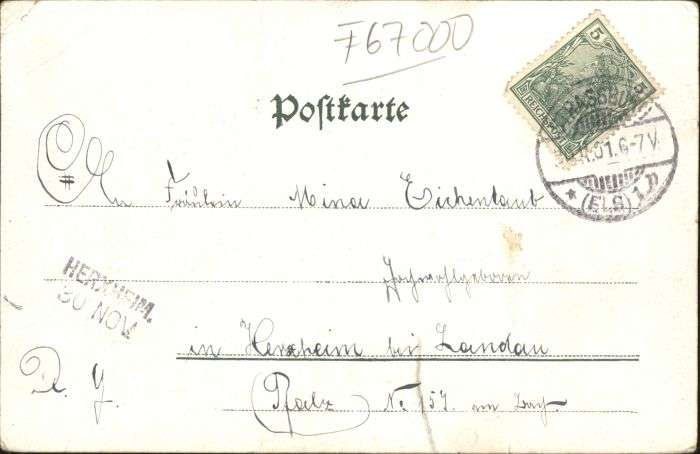 F67000
Postkarte
5 5
REICHSPOST
STRASSBURG
.01.6-7V.
* (ELS) 1 p
An Fräulein Mina Eichenlaub
Hochwohlgeboren
HERXHEIM.
30 NOV.
in Herxheim bei Landau
D. G.
(Pfalz) No 157.